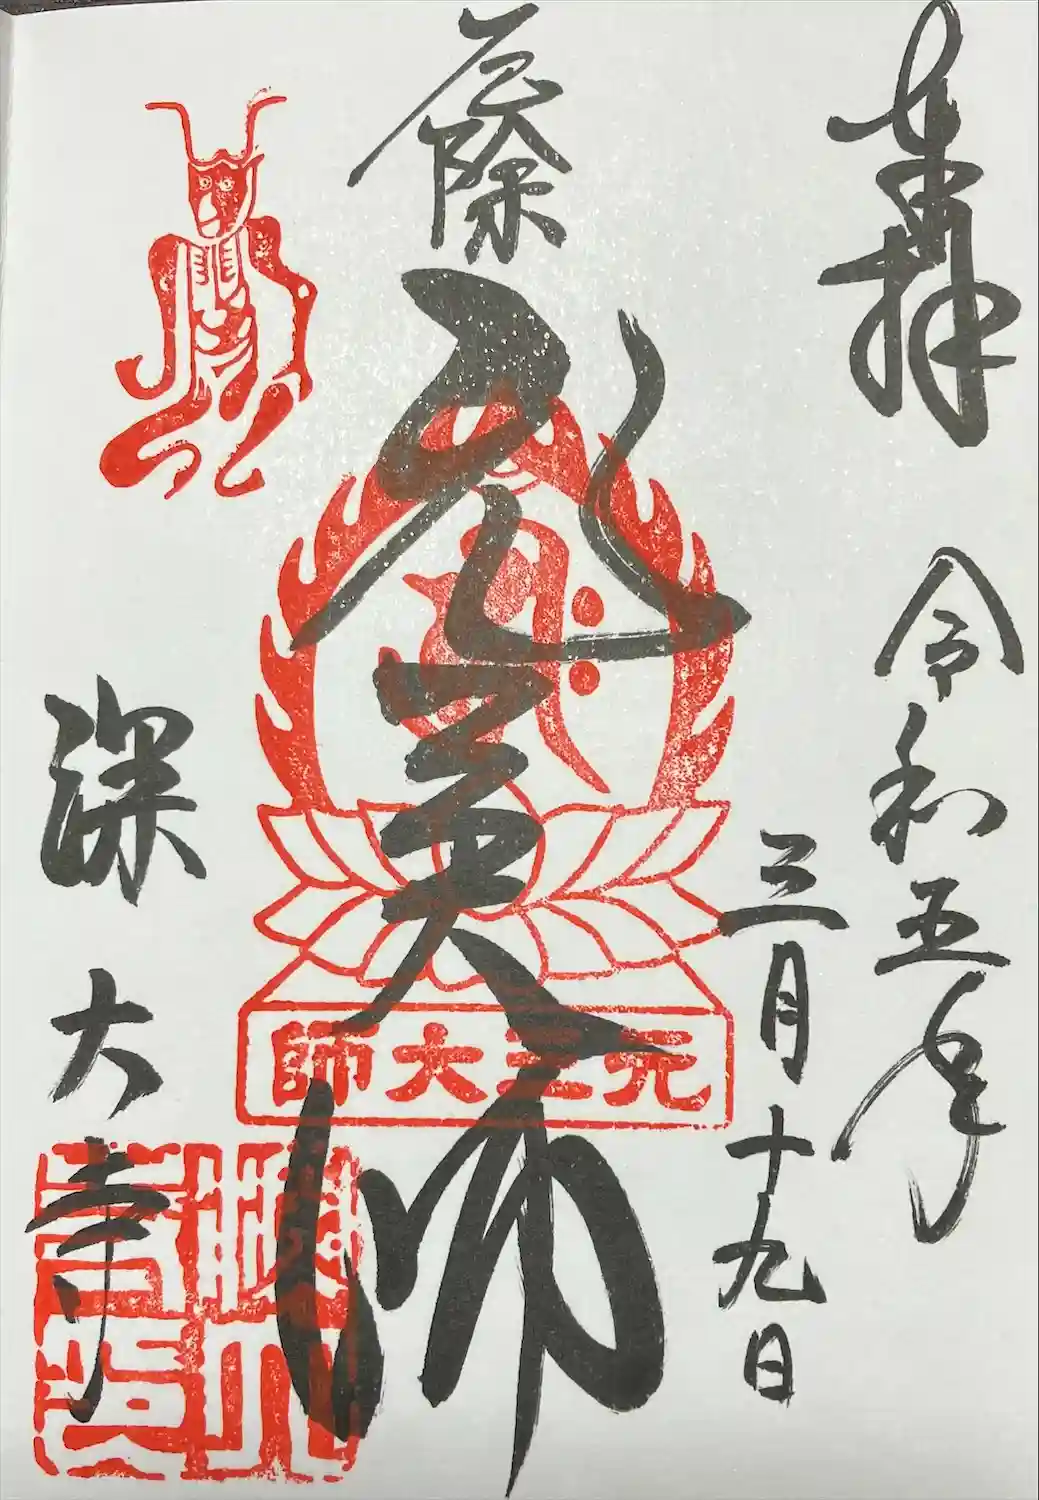 奉拝
令和五年
三月十九日
厄除
元三大師
元三大師
深大寺